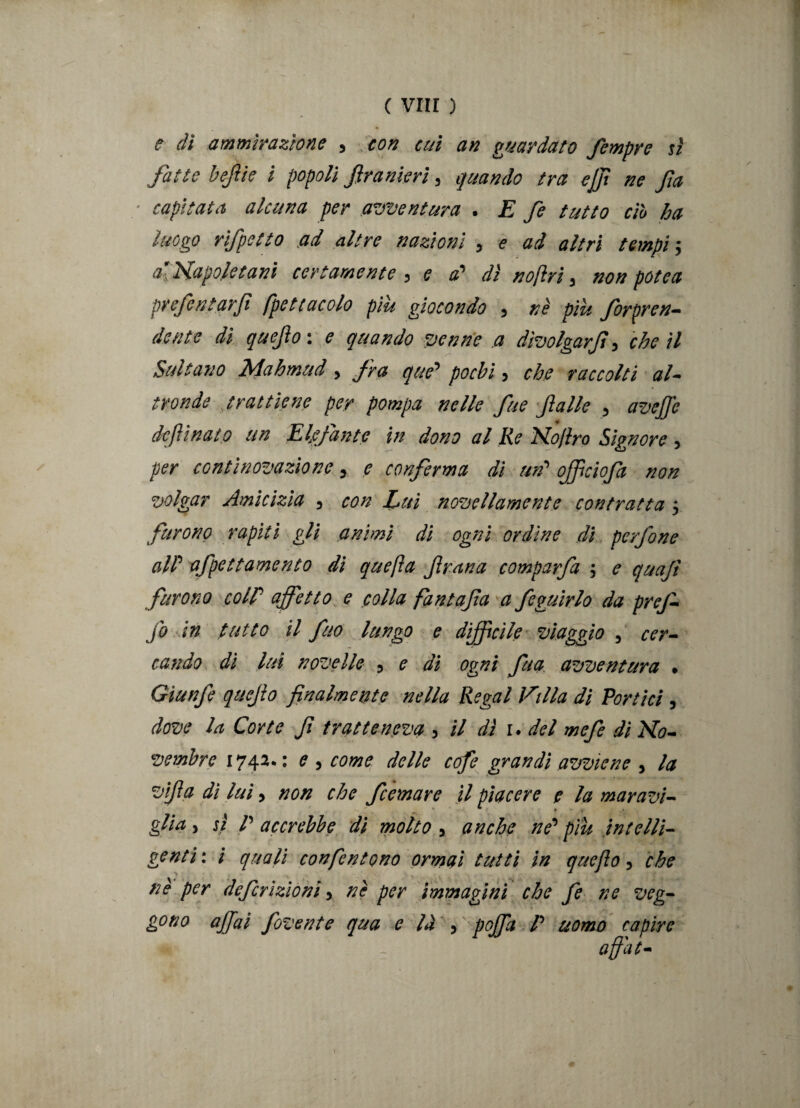 ( VIII )
e di ammirazione , con cui an guardato ſempre sì
fatte beſtie i popoli ſtranieri, quando tra eſſi ne ſia
capitata alcuna per avventura . E ſe tutto ciò ha
luogo riſpetto ad altre nazioni , e ad altri tempi ;
a' Napoletani certamente , e a' dì noſtri, non potea
preſentarſi ſpettacolo più giocondo , nè più ſorpren-
dente di queſto : e quando venne a divolgarſi, che il
Sultano Mahmud , fra que' pochi , che raccolti al-
tronde trattiene per pompa nelle ſue ſtalle , aveſſe
deſtinato un Elefante in dono al Re Noſtro Signore ,
per continovazione , e conferma di un' officioſa non
volgar Amicizia , con Lui novellamente contratta ;
furono rapiti gli animi di ogni ordine di perſone
all' aſpettamento di queſta ſtrana comparſa ; e quaſi
furono coll' affetto e colla fantaſia a ſeguirlo da preſ-
ſo in tutto il ſuo lungo e difficile viaggio , cer-
cando di lui novelle , e di ogni ſua avventura .
Giunſe queſto finalmente nella Regal Villa di Portici ,
dove la Corte ſi tratteneva , il dì 1. del meſe di No-
vembre 1742. : e , come delle coſe grandi avviene , la
viſta di lui, non che ſcemare il piacere e la maravi-
glia , sì l' accrebbe di molto , anche ne' più intelli-
genti : i quali conſentono ormai tutti in queſto , che
nè per deſcrizioni, nè per immagini che ſe ne veg-
gono aſſai ſovente qua e là , poſſa l' uomo capire
affat-